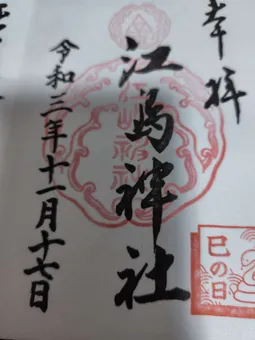 奉拝
江島神社
令和三年十一月十七日
巳の日